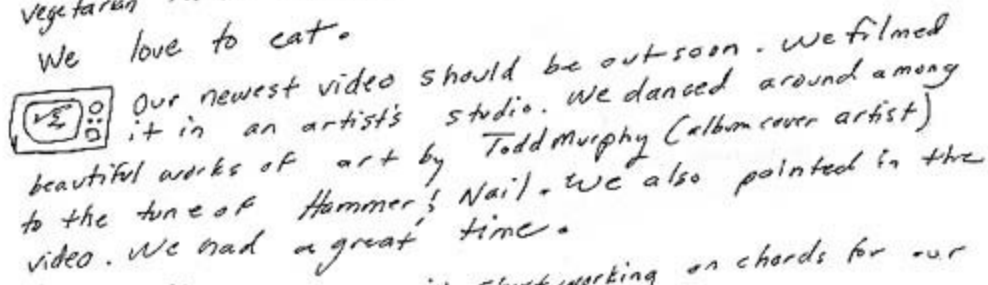 vegetarian
We love to eat.
Our newest video should be out soon. We filmed
it in an artist's studio. We danced around among
beautiful works of art by Todd Murphy (album cover artist)
to the tune of Hammer & Nail. We also painted in the
video. We had a great time.
start working on chords for our